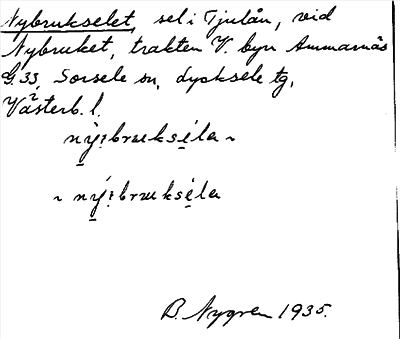 Nybrukselet, sel i Tjulån, vid
Nybruket, trakten V. byn Ammarnäs
G. 33, Sorsele sn, Lycksele tg,
Västerb. l.
B. Nygren 1935.